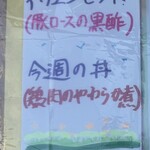 (豚ロースの黒酢)
今週の丼
(鶏肉のやわらか煮)